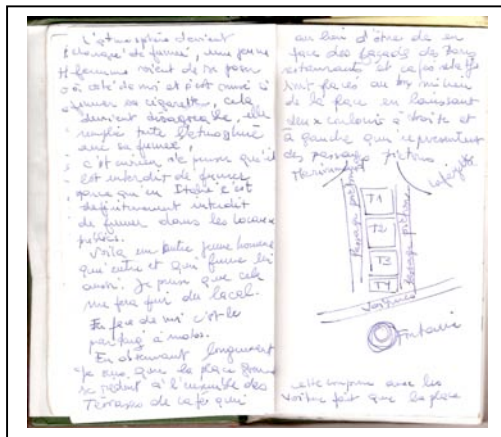 L'atmosphère devient
chargé de fumée, une jeune
femme vient de se poser
à coté de moi et s'est mise à
fumer sa cigarette, cela
devient désagréable, elle
remplie toute l'atmosphère
avec sa fumée,
c'est curieux de penser qu'il
est interdit de fumer
parce qu'en Italie c'est
définitivement interdit
de fumer dans les locaux
publics.
Voila un autre jeune homme
qui entre et qui fume lui
aussi. Je pense que cela
me fera fuir du local.
En face de moi c'est le
parking à motos.
En observant longuement
je vois que la place
se réduit à l'ensemble des
Terrasses de café qui
au lieu d'être de en
face des façades des
restaurants et cafés relatifs
sont placés au milieu
de la place en laissant
deux couloirs à droite et
à gauche qui représentent
des passages piétons
Lafayette
Passage piétons
T1
T2
T3
T4
Passage piétons
Fontaine
cette emprise avec les
voiture fait que la place